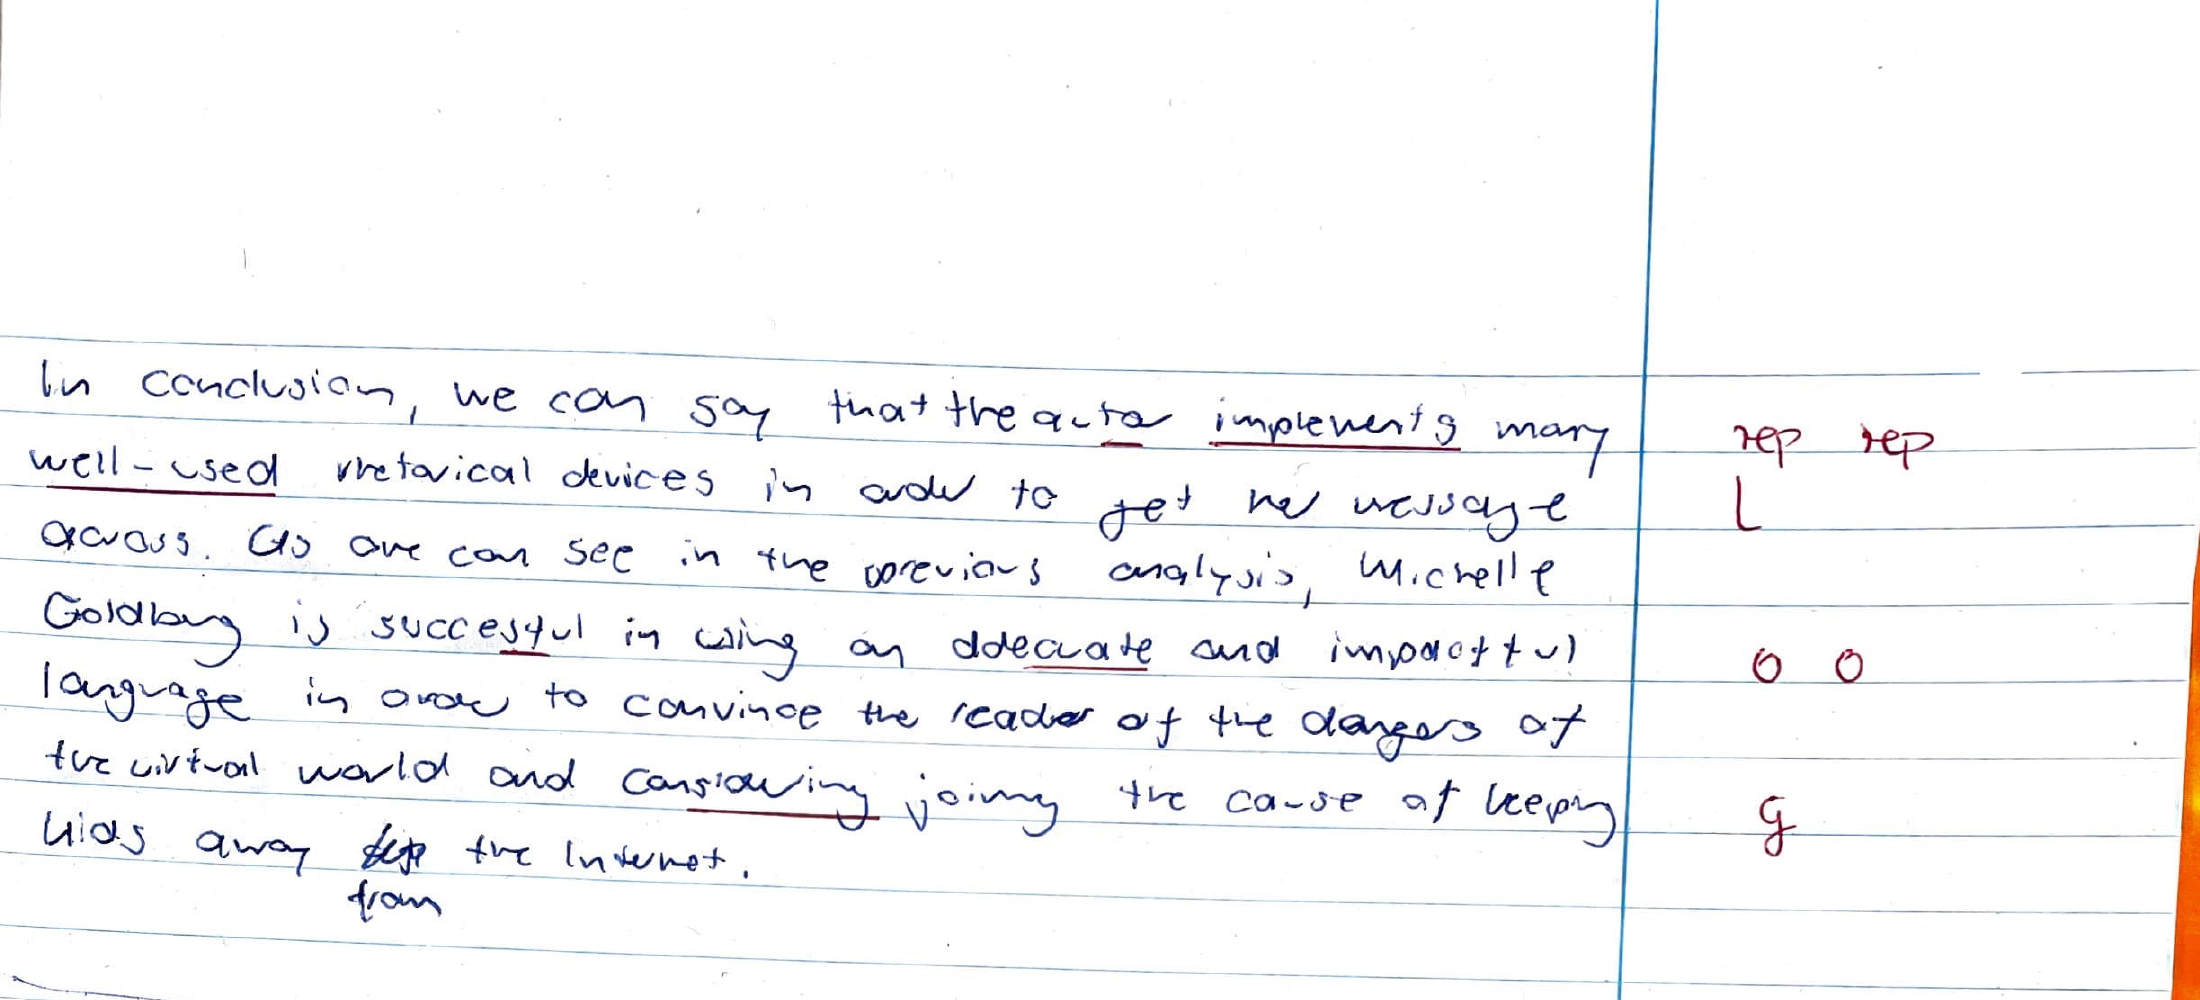 In conclusion, we can say that the autor implements many rep rep
well-used rhetorical devices in order to get her message L
across. As one can see in the previous analysis, Michelle
Goldberg is succesful in using an adecuate and impactful O O
language in order to convince the reader of the dangers of
the virtual world and considering joining the cause of keeping g
kids away the Internet.
from